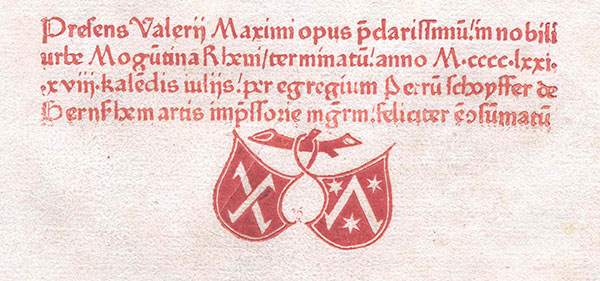 Presens Valerij Maximi opus p̄clarissimū/ in nobili
urbe Mogūtina Rheni/ terminatū/ anno M.cccc.lxxi.
.xviij.kalēdis iulijs/ per egregium Petrū schoyffer de
Gernßhem artis imp̄ssorie mḡrm/ feliciter ē ɔsūmatū